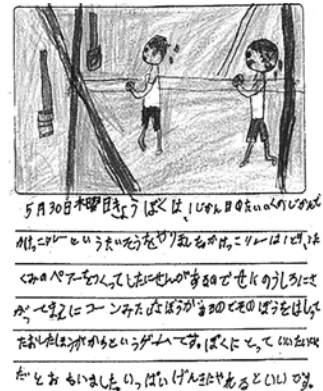 5月30日木曜日きょうぼくは、1じかん目のたいいくのじかんで
かけっこリレーというたいそうをやりましたかけっこリレーは
くみのペアーをつくってしたにせんがあるので せんのうしろにさ
がってまえにコーンみたいなぼうがあるのでそのぼうをはして
たおしたほうがかちというゲームです。ぼくにとって
だとおもいました。いっぱい やれるといいです。